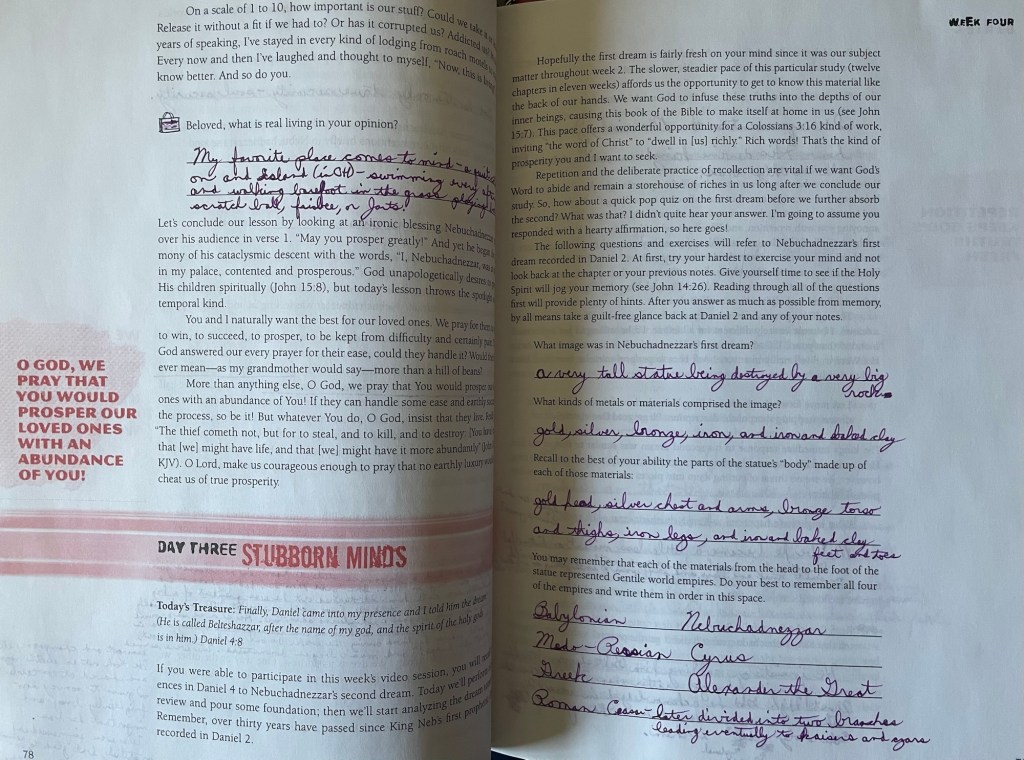 On a scale of 1 to 10, how important is our stuff? Could we take a
Release it without a fit if we had to? Or has it corrupted us? Addicted
years of speaking, I've stayed in every kind of lodging from roach
Every now and then I've laughed and thought to myself, "Now, this is
know better. And so do you.
Beloved, what is real living in your opinion?
My favorite place comes to mind - a
on and Island (in OH) - swimming every
and walking barefoot in the grass playing
scratch ball, frisbee, or Jarts!
Let's conclude our lesson by looking at an ironic blessing Nebuchadnezzar
over his audience in verse 1. "May you prosper greatly!" And yet he began
mony of his cataclysmic descent with the words, "I, Nebuchadnezzar, was
in my palace, contented and prosperous." God unapologetically desires to
His children spiritually (John 15:8), but today's lesson throws the spotlight
temporal kind.
You and I naturally want the best for our loved ones. We pray for them
to win, to succeed, to prosper, to be kept from difficulty and certainly
God answered our every prayer for their ease, could they handle it? Would
ever mean—as my grandmother would say—more than a hill of beans?
More than anything else, O God, we pray that You would prosper
ones with an abundance of You! If they can handle some ease and earthly
the process, so be it! But whatever You do, O God, insist that they
"The thief cometh not, but for to steal, and to kill, and to destroy: [You
that [we] might have life, and that [we] might have it more abundantly"
KJV). O Lord, make us courageous enough to pray that no earthly luxury
cheat us of true prosperity.
O GOD, WE
PRAY THAT
YOU WOULD
PROSPER OUR
LOVED ONES
WITH AN
ABUNDANCE
OF YOU!
DAY THREE STUBBORN MINDS
Today's Treasure: Finally, Daniel came into my presence and I told him the dream
(He is called Belteshazzar, after the name of my god, and the spirit of the holy gods
is in him.) Daniel 4:8
If you were able to participate in this week's video session, you will
ences in Daniel 4 to Nebuchadnezzar's second dream. Today we'll
review and pour some foundation; then we'll start analyzing the dream
Remember, over thirty years have passed since King Neb's first
recorded in Daniel 2.
78
WEEK FOUR
Hopefully the first dream is fairly fresh on your mind since it was our subject
matter throughout week 2. The slower, steadier pace of this particular study (twelve
chapters in eleven weeks) affords us the opportunity to get to know this material like
the back of our hands. We want God to infuse these truths into the depths of our
inner beings, causing this book of the Bible to make itself at home in us (see John
15:7). This pace offers a wonderful opportunity for a Colossians 3:16 kind of work,
inviting "the word of Christ" to "dwell in [us] richly." Rich words! That's the kind of
prosperity you and I want to seek.
Repetition and the deliberate practice of recollection are vital if we want God's
Word to abide and remain a storehouse of riches in us long after we conclude our
study. So, how about a quick pop quiz on the first dream before we further absorb
the second? What was that? I didn't quite hear your answer. I'm going to assume you
responded with a hearty affirmation, so here goes!
The following questions and exercises will refer to Nebuchadnezzar's first
dream recorded in Daniel 2. At first, try your hardest to exercise your mind and not
look back at the chapter or your previous notes. Give yourself time to see if the Holy
Spirit will jog your memory (see John 14:26). Reading through all of the questions
first will provide plenty of hints. After you answer as much as possible from memory,
by all means take a guilt-free glance back at Daniel 2 and any of your notes.
What image was in Nebuchadnezzar's first dream?
a very tall statue being destroyed by a very big
rock.
What kinds of metals or materials comprised the image?
gold, silver, bronze, iron, and iron and baked clay
Recall to the best of your ability the parts of the statue's "body" made up of
each of those materials:
gold head, silver chest and arms, bronze torso
and thighs, iron legs, and iron and baked clay
feet and toes
You may remember that each of the materials from the head to the foot of the
statue represented Gentile world empires. Do your best to remember all four
of the empires and write them in order in this space.
Babylonian Nebuchadnezzar
Medo-Persian Cyrus
Greek Alexander the Great
Roman Ceasar later divided into two branches
leading eventually to kaisers and czars